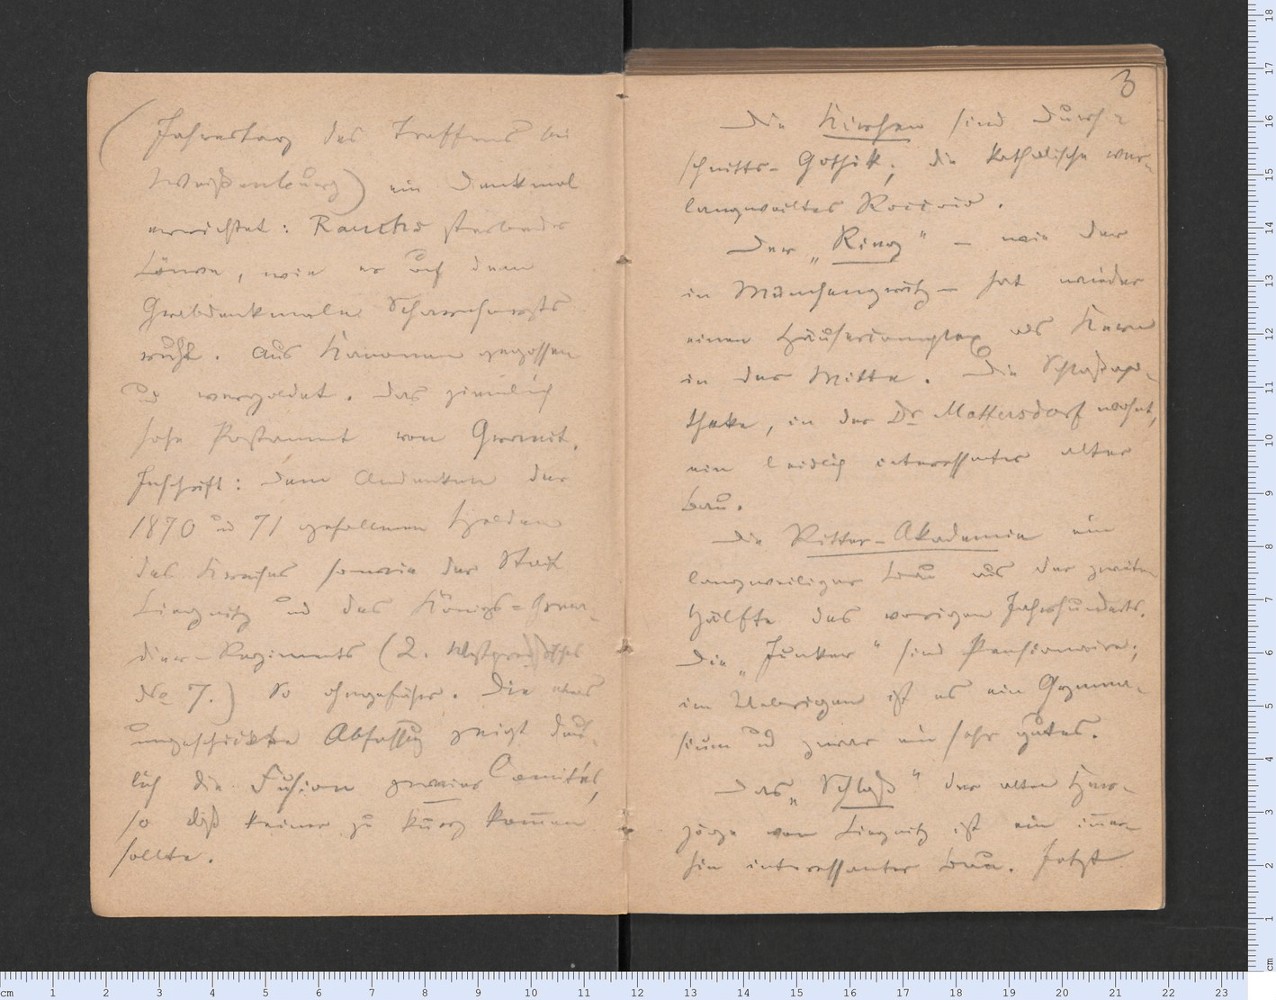 (Jahrestag des Treffens bei
Weißenburg) ein Denkmal
errichtet: Rauchs sterbender
Löwe, wie er auf dem
Grabdenkmale Scharnhorsts
ruht. Aus Kanonen gegossen
u vergoldet. Das ziemlich
hohe Postament von Granit.
Inschrift: Dem Andenken der
1870 u 71 gefallenen Helden
des Kreises sowie der Stadt
Liegnitz und des Königs-Grena-
dier-Regiments (2. Westpreußisches
No 7.) So ohngefähr. Die etwas
ungeschickte Abfassung zeigt deut-
lich die Fusion zweier Comités,
so daß keiner zu kurz kom̄en
sollte.
3
Die Kirchen sind Durch-
schnitts-Gothik; die katholische
langweiliges Rococo.
Der „Ring" – wie der
in Münchengrätz – hat wieder
einen Häusercomplex als Kern
in der Mitte. Die Schloßapo-
theke, in der Dr. Mattersdorf wohnt,
ein leidlich interessanter alter
Bau.
Die Ritter-Akademie ein
langweiliger Bau aus der zweiten
Hälfte des vorigen Jahrhunderts.
Die „Junker" sind Pensionaire;
im Uebrigen ist es ein Gymna-
sium u zwar ein sehr gutes.
Das „Schloß" der alten Her-
zöge von Liegnitz ist ein im̄er-
hin interessanter Bau. Jetzt